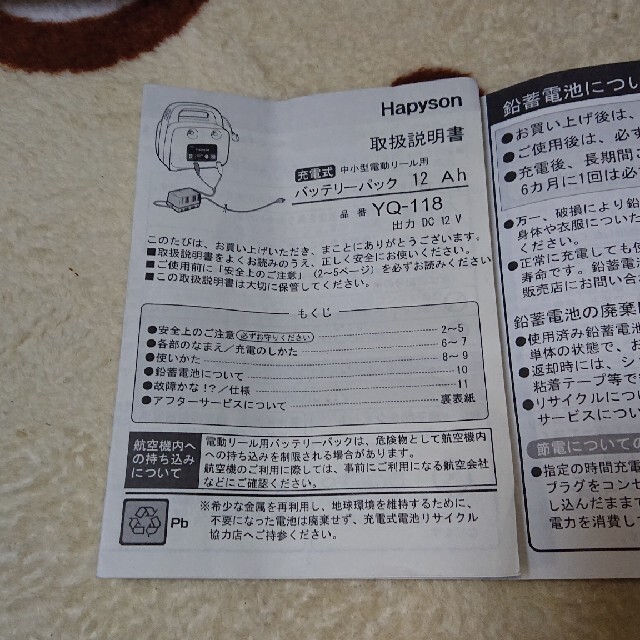 Hapyson
取扱説明書
充電式 中小型電動リール用
バッテリーパック 12 Ah
品番 YQ-118
出力 DC 12 V
このたびは、お買い上げいただき、まことにありがとうございます。
■取扱説明書をよくお読みのうえ、正しく安全にお使いください。
■ご使用前に「安全上のご注意」(2~5ページ)を必ずお読みください
■この取扱説明書は大切に保管してください。
もくじ
●安全上のご注意 必ずお守りください 2~5
●各部のなまえ/充電のしかた 6~7
●使いかた 8~9
●鉛蓄電池について 10
●故障かな!?/仕様 11
●アフターサービスについて 裏表紙
航空機内への持ち込みについて
電動リール用バッテリーパックは、危険物として航空機内
への持ち込みを制限される場合があります。
航空機のご利用に際しては、事前にご利用になる航空会社
などにご確認ください。
Pb
※希少な金属を再利用し、地球環境を維持するために、
不要になった電池は廃棄せず、充電式電池リサイクル
協力店へご持参ください。
鉛蓄電池につい
●お買い上げ後は、
●ご使用後は、必
●充電後、長期間
6カ月に1回は必
●万一、破損により鉛
身体や衣服につい
ください。
●正常に充電しても
寿命です。鉛蓄電
販売店にお問い合
鉛蓄電池の廃棄
●使用済み鉛蓄電池
単体の状態で、お
●返却時には、シ
粘着テープ等で
●リサイクルについ
サービスについ
節電についての
●指定の時間充電
プラグをコンセ
し込んだままで
電力を消費して